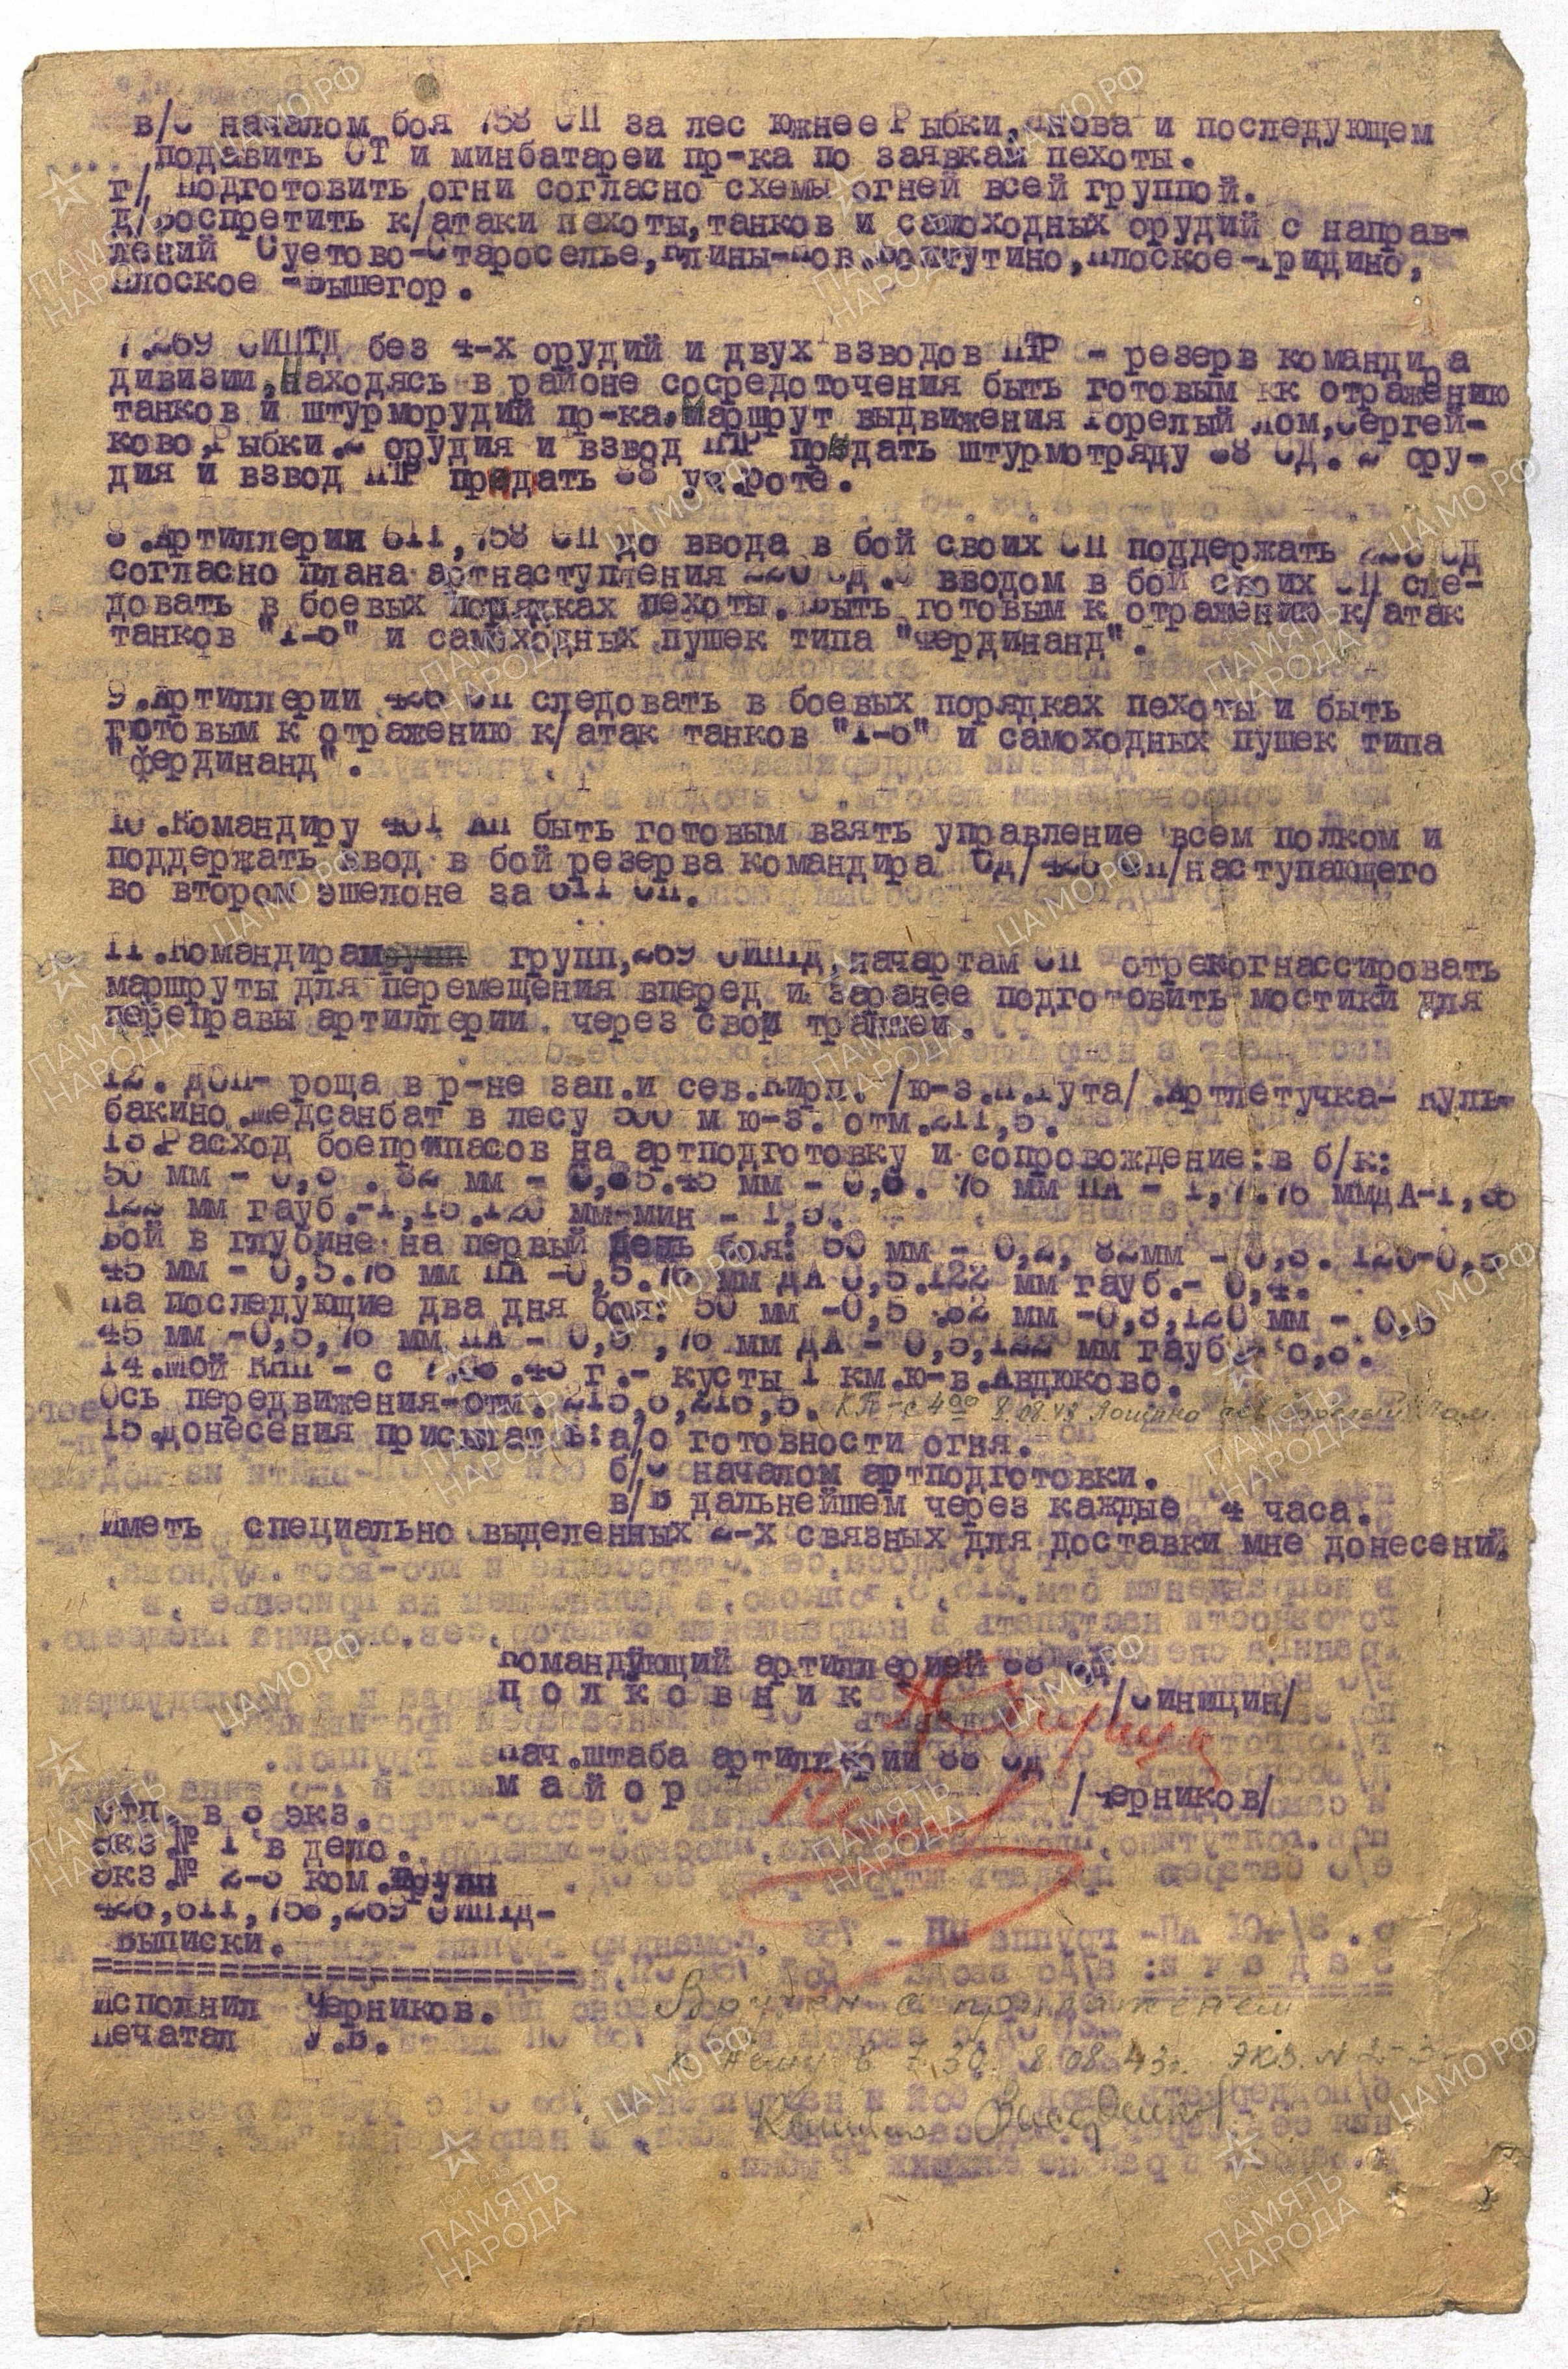 в/С началом боя 758 СП за лес южнее Рыбки, Янова и последующем
подавить ОТ и минбатареи пр-ка по заявкам пехоты.
г/ Подготовить огни согласно схемы огней всей группой.
д/Воспретить к/атаки пехоты,танков и самоходных орудий с направ-
лений Суетово-Староселье, Войтутино,Плоское-Гридино,
Плоское -Вышегор.
7.269 ОИПТД без 4-х орудий и двух взводов ПТР - резерв командира
дивизии,Находясь в районе сосредоточения быть готовым кк отражению
танков и штурморудий пр-ка.Маршрут выдвижения Горелый Лом,Сергей-
ково,Рыбки.2 орудия и взвод ПТР придать штурмотряду 88 СД. 2 ору-
дия и взвод ПТР придать 88 уч.Роте.
8.Артиллерии 611,758 СП до ввода в бой своих СП поддержать 220 СД
согласно плана артнаступления 220 СД.С вводом в бой своих СП сле-
довать в боевых порядках пехоты. Быть готовым к отражению к/атак
танков "Т-6" и самоходных пушек типа "Фердинанд".
9.Артиллерии 426 СП следовать в боевых порядках пехоты и быть
готовым к отражению к/атак танков "Т-6" и самоходных пушек типа
"фердинанд".
10.Командиру 401 АП быть готовым взять управление всем полком и
поддержать ввод в бой резерва командира СД/426 СП/наступающего
во втором эшелоне за 611 СП.
11.Командирам групп,269 ОИПТД,начартам СП отрекогнассировать
маршруты для перемещения вперед и заранее подготовить мостики для
переправы артиллерии через свои траншеи.
12. ДОП- роща в р-не зап.и сев.Кирп. /ю-з.П.Гута/.Артлетучка- Куль-
бакино.Медсанбат в лесу 500 м ю-з. отм.211,5.
13.Расход боеприпасов на артподготовку и сопровождение:в б/к:
50 мм - 0,8 . 82 мм - 0,85.45 мм - 0,6. 76 мм ПА - 1,7.76 ммДА-1,86
122 мм гауб.-1,15.120 мм-мин - 1,5.
Бой в глубине на первый день боя: 50 мм - 0,2, 82мм - 0,3. 120-0,5
45 мм - 0,5.76 мм ПА -0,5.76 мм ДА 0,5.122 мм гауб.- 0,4.
На последующие два дня боя: 50 мм -0,5 .82 мм -0,8,120 мм - 0,6
45 мм -0,5,76 мм ПА - 0,5 ,76 мм ДА - 0,5,122 мм гауб.- 0,8.
14.Мой КНП - с 7.08.43 г.- кусты 1 км.ю-в.Авдюково.
Ось передвижения-отм. 215,6,216,5. КП-с 4⁰⁰ 8.08.43 Лощина сев Горелый Лом.
15.донесения присылать:а/о готовности огня.
б/С началом артподготовки.
в/В дальнейшем через каждые 4 часа.
Иметь специально выделенных 2-х связных для доставки мне донесений.
Командующий артиллерией 88 СД
полковник /Синицин/
Нач.штаба артиллерии 88 СД
майор /Черников/
Отп. в 3 экз.
Экз № 1 в дело.
Экз.№ 2-3 ком.групп
426,611,758,269 ОИПТД-
Выписки.
Исполнил Черников.
Печатал У.В.
Вручен с приложением
к нему в 7.30. 8.08.43г. экз. N 2-3-